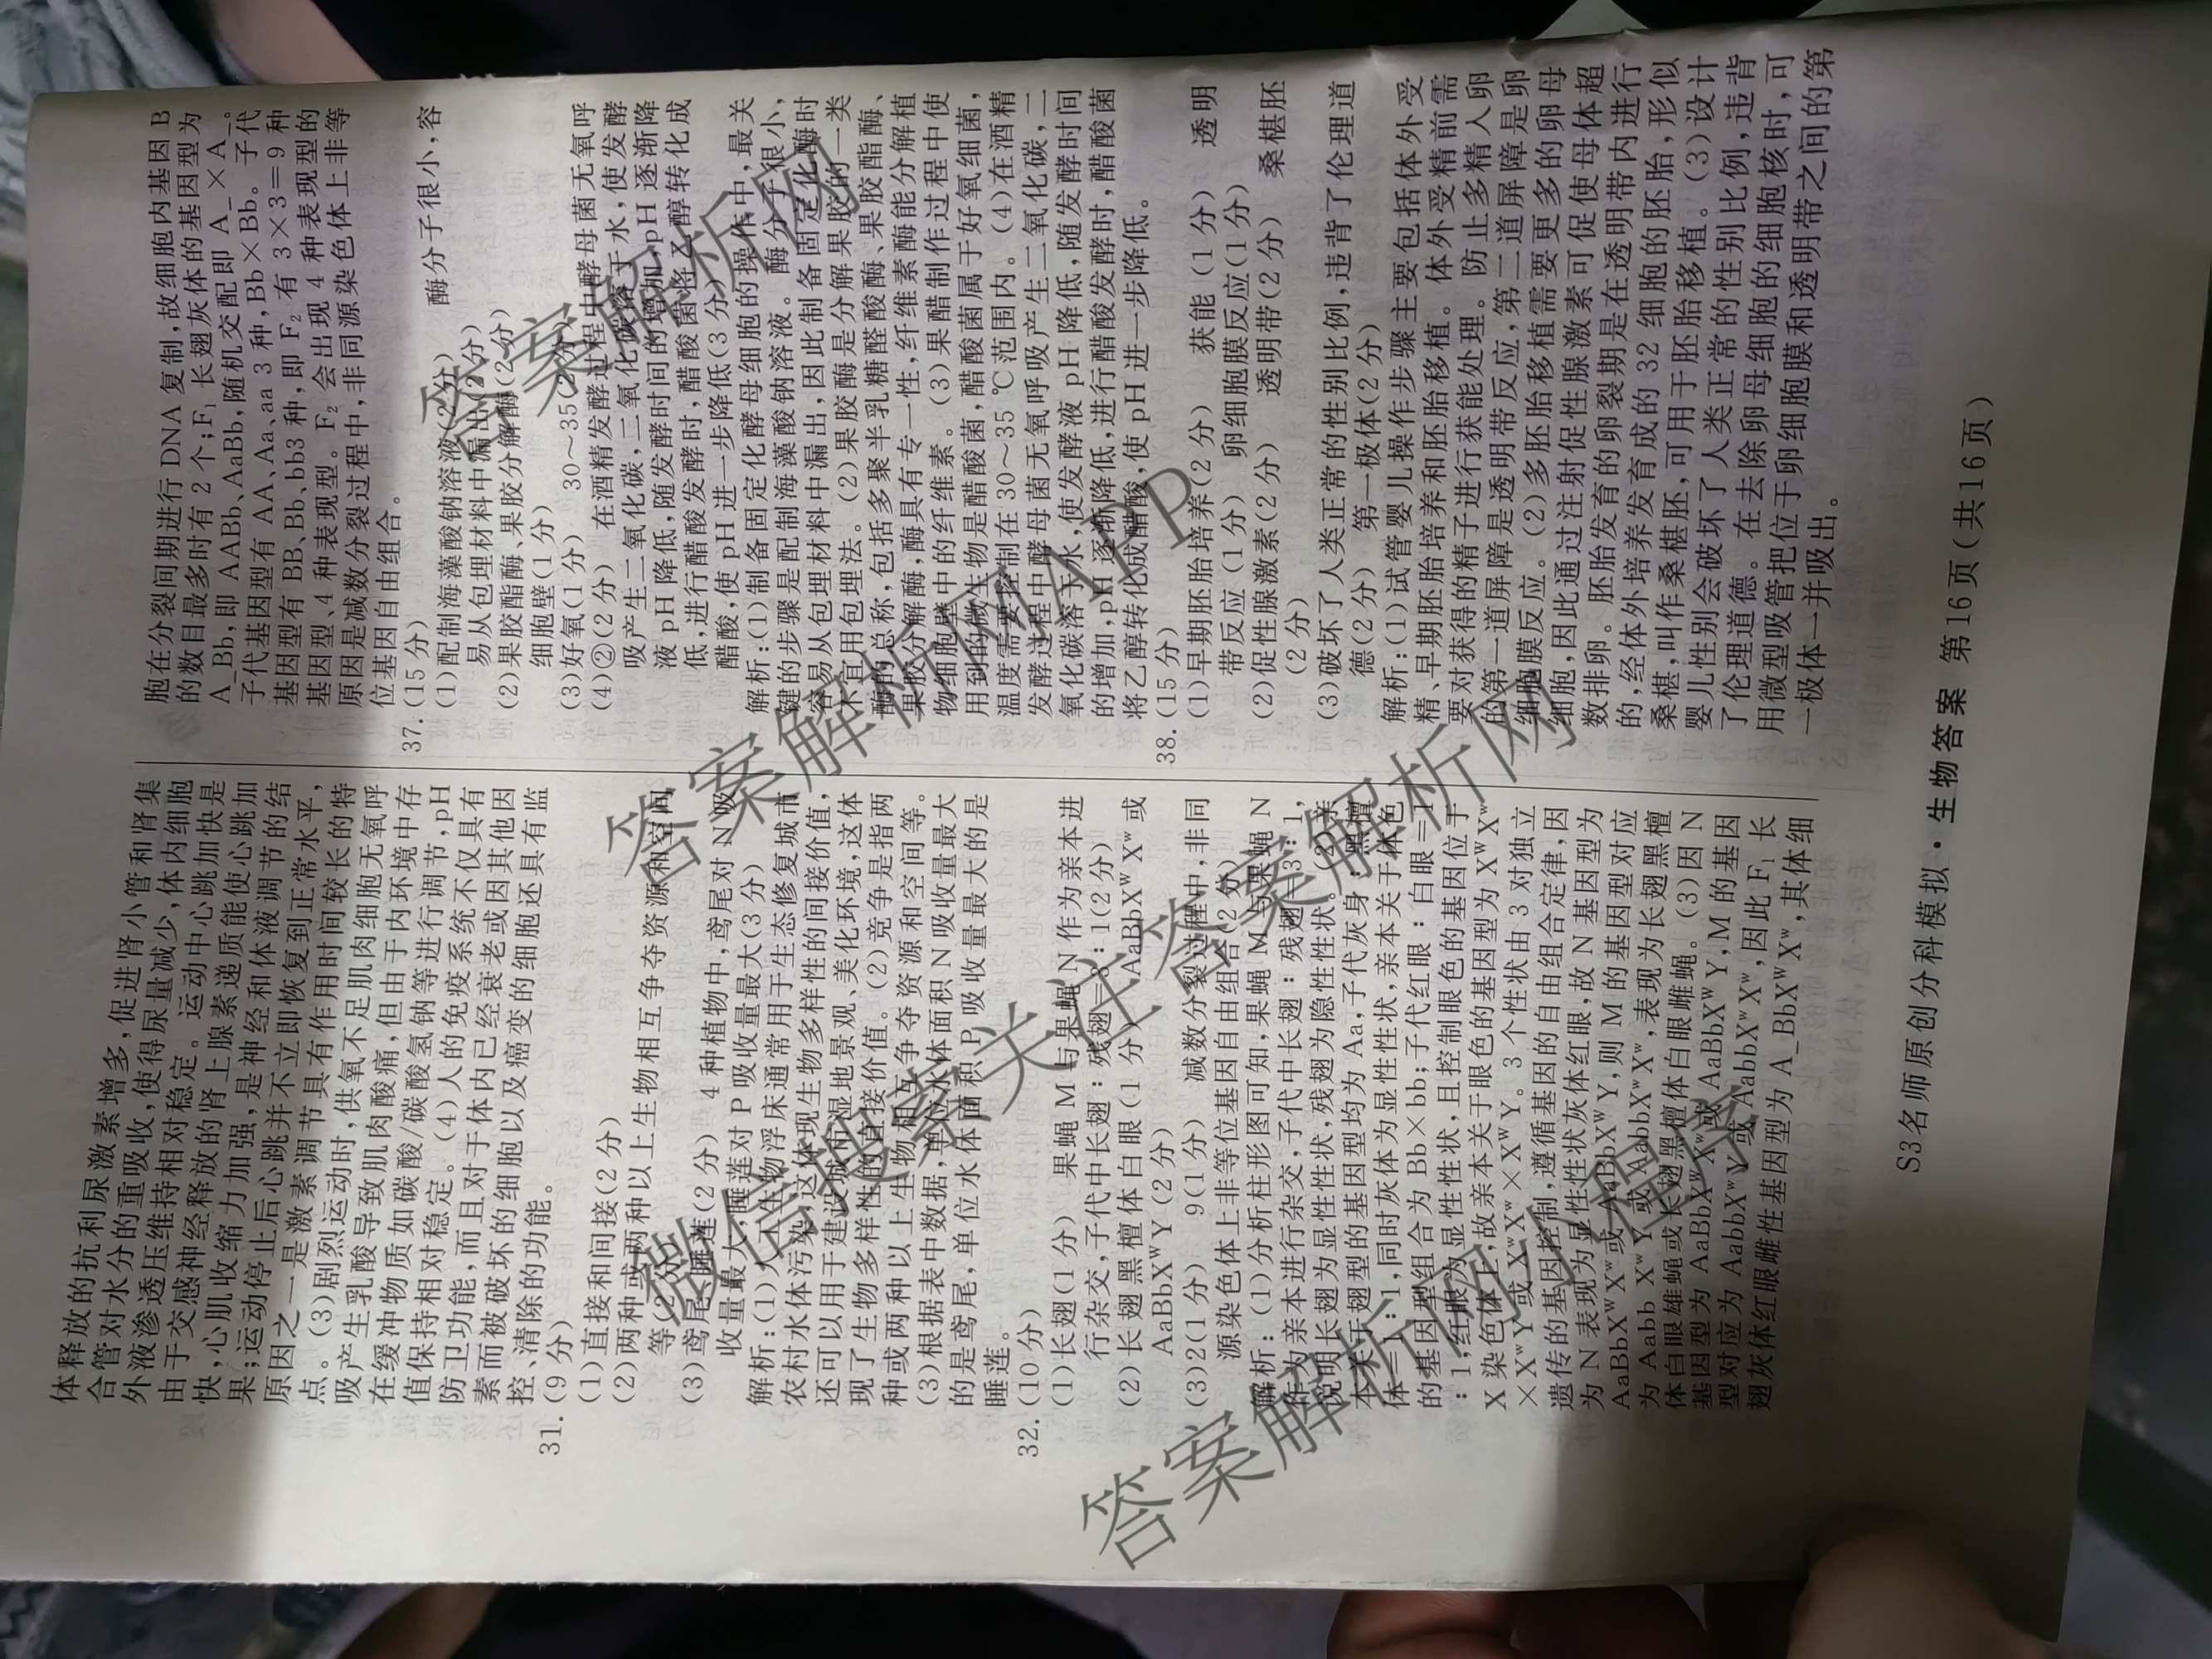 体释放的抗利尿激素增多,促进肾小管和肾集
合管对水分的重吸收,使得尿量减少,体内细胞
外液渗透压维持相对稳定。运动中心跳加快是
由于交感神经释放的肾上腺素递质能使心跳加
快,心肌收缩力加强,是神经和体液调节的结
果;运动停止后心跳并不立即恢复到正常水平,
原因之一是激素调节具有作用时间较长的特
点。(3)剧烈运动时,供氧不足肌肉细胞无氧呼
吸产生乳酸导致肌肉酸痛,但由于内环境中存
在缓冲物质如碳酸/碳酸氢钠等进行调节,pH
值保持相对稳定。(4)人的免疫系统不仅具有
防卫功能,而且对于体内已经衰老或因其他因
素而被破坏的细胞以及癌变的细胞还具有监
控、清除的功能。
31.(9分)
(1)直接和间接(2分)
(2)两种或两种以上生物相互争夺资源和空间
等(2分)
(3)鸢尾、睡莲(2分) 4种植物中,鸢尾对N吸
收量最大,睡莲对P吸收量最大(3分)
解析:(1)人工生物浮床通常用于生态修复城市
农村水体污染,这体现生物多样性的间接价值,
还可以用于建设城市湿地景观、美化环境,这体
现了生物多样性的直接价值。(2)竞争是指两
种或两种以上生物相互争夺资源和空间等。
(3)根据表中数据,单位水体面积N吸收量最大
的是鸢尾,单位水体面积P吸收量最大的是
睡莲。
32.(10分)
(1)长翅(1分) 果蝇M与果蝇N作为亲本进
行杂交,子代中长翅:残翅=3:1(2分)
(2)长翅黑檀体白眼(1分) AaBbXᵂXʷ或
AaBbXʷY(2分)
(3)2(1分) 9(1分) 减数分裂过程中,非同
源染色体上非等位基因自由组合(2分)
解析:(1)分析柱形图可知,果蝇M与果蝇N
作为亲本进行杂交,子代中长翅:残翅=3:1,
说明长翅为显性性状,残翅为隐性性状。(2)亲
本关于翅型的基因型均为Aa,子代灰身:黑檀
体=1:1,同时灰体为显性性状,亲本关于体色
的基因型组合为Bb×bb;子代红眼:白眼=1
:1,红眼为显性性状,且控制眼色的基因位于
X染色体上,故亲本关于眼色的基因型为XᵂXʷ
×XʷY或XʷXʷ×XᵂY。3个性状由3对独立
遗传的基因控制,遵循基因的自由组合定律,因
为N表现为显性性状灰体红眼,故N基因型为
AaBbXᵂXʷ或AaBbXᵂY,则M的基因型对应
为AabbXʷY或AabbXʷXʷ,表现为长翅黑檀
体白眼雄蝇或长翅黑檀体白眼雌蝇。(3)因N
基因型为AaBbXᵂXʷ或AaBbXᵂY,M的基因
型对应为AabbXʷY或AabbXʷXʷ,因此F₁长
翅灰体红眼雌性基因型为A_BbXᵂXʷ,其体细
胞在分裂间期进行DNA复制,故细胞内基因B
的数目最多时有2个;F₁长翅灰体的基因型为
A_Bb,即AABb、AaBb,随机交配即A_×A_。
子代基因型有AA、Aa、aa 3种,Bb×Bb。子代
基因型有BB、Bb、bb3种,即F₂有3×3=9种
基因型、4种表现型。F₂会出现4种表现型的
原因是减数分裂过程中,非同源染色体上非等
位基因自由组合。
37.(15分)
(1)配制海藻酸钠溶液(2分) 酶分子很小,容
易从包埋材料中漏出(2分)
(2)果胶酯酶、果胶分解酶(2分)
细胞壁(1分)
(3)好氧(1分) 30～35(2分)
(4)②(2分) 在酒精发酵过程中酵母菌无氧呼
吸产生二氧化碳,二氧化碳溶于水,使发酵
液pH降低,随发酵时间的增加,pH逐渐降
低,进行醋酸发酵时,醋酸菌将乙醇转化成
醋酸,使pH进一步降低(3分)
解析:(1)制备固定化酵母细胞的操作中,最关
键的步骤是配制海藻酸钠溶液。酶分子很小,
容易从包埋材料中漏出,因此制备固定化酶时
不宜用包埋法。(2)果胶酶是分解果胶的一类
酶的总称,包括多聚半乳糖醛酸酶、果胶酯酶、
果胶分解酶,酶具有专一性,纤维素酶能分解植
物细胞壁中的纤维素。(3)果醋制作过程中使
用到的微生物是醋酸菌,醋酸菌属于好氧细菌,
温度需要控制在30～35℃范围内。(4)在酒精
发酵过程中酵母菌无氧呼吸产生二氧化碳,二
氧化碳溶于水,使发酵液pH降低,随发酵时间
的增加,pH逐渐降低,进行醋酸发酵时,醋酸菌
将乙醇转化成醋酸,使pH进一步降低。
38.(15分)
(1)早期胚胎培养(2分) 获能(1分) 透明
带反应(1分) 卵细胞膜反应(1分)
(2)促性腺激素(2分) 透明带(2分) 桑椹胚
(2分)
(3)破坏了人类正常的性别比例,违背了伦理道
德(2分) 第一极体(2分)
解析:(1)试管婴儿操作步骤主要包括体外受
精、早期胚胎培养和胚胎移植。体外受精前需
要对获得的精子进行获能处理。防止多精入卵
的第一道屏障是透明带反应,第二道屏障是卵
细胞膜反应。(2)多胚胎移植需要更多的卵母
细胞,因此通过注射促性腺激素可促使母体超
数排卵。胚胎发育的卵裂期是在透明带内进行
的,经体外培养发育成的32细胞的胚胎,形似
桑椹,叫作桑椹胚,可用于胚胎移植。(3)设计
婴儿性别会破坏了人类正常的性别比例,违背
了伦理道德。在去除卵母细胞的细胞核时,可
用微型吸管把位于卵细胞膜和透明带之间的第
一极体一并吸出。
S3名师原创分科模拟·生物答案 第16页(共16页)
答案解析网
答案解析网APP
微信搜索关注答案解析网
答案解析网小程序